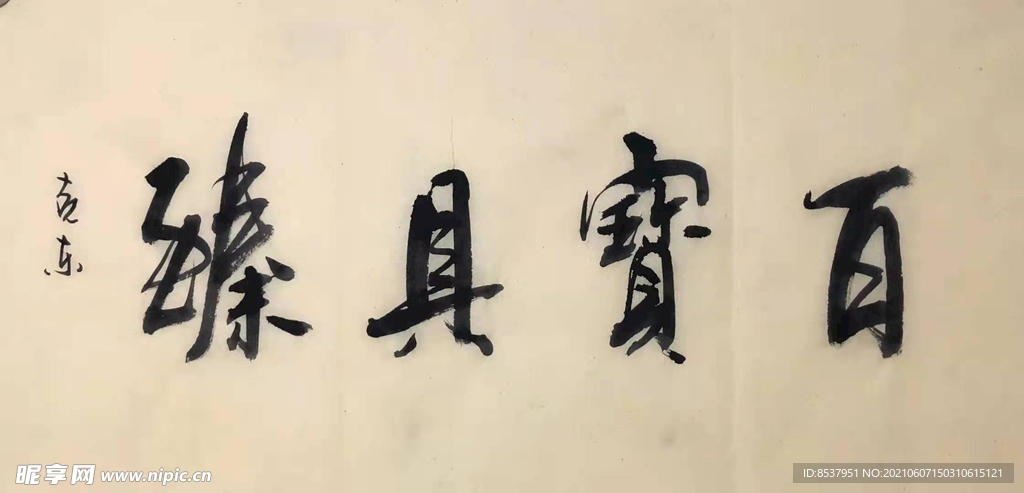 百寶具臻
克东
昵享网 www.nipic.cn
ID:8537951 NO:20210607150310615121